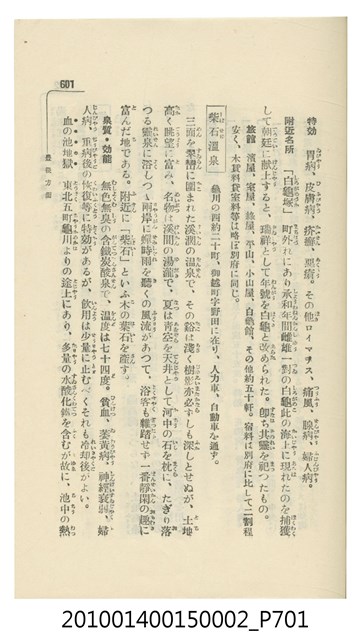 601
豊後方面
特効 胃病、皮膚病、疥癬、惡瘡。その他ロイマチス、痛風、腺病、婦人病。
附近名所 「白龜塚」 町外れにあり承和年間雌雄一對の白龜此の海上に現れたのを捕獲
して朝廷に獻上すると、瑞祥として年號を白龜と改められた。卽ち其靈を祀つたもの。
旅館 濱屋、富屋、綠屋、平山、小山屋、白龜館、その他約五十軒。宿料は別府に比して二割程
安く、木賃料貸室料等は略ぼ別府に同じ。
柴石溫泉 龜川の西約二十町、御越町字野田に在り、人力車、自動車を通ず。
三面を翠巒に圍まれた溪澗の溫泉で、その谿は淺く樹影亦必ずしも深しとせぬが、土地
高く眺望に富み、名物は溪間の湯瀧で、夏は靑空を天井として河中の石を枕に、たぎり落
つる靈泉に浴しつゝ兩岸に蟬時雨を聽くの風流があつて、浴客も雜踏せず一番靜閑の趣に
富んだ地である。附近に「柴石」といふ木の葉石を產す。
泉質・効能 無色無臭の含鐵炭酸泉で、溫度は七十四度。貧血、萎黃病、神經衰弱、婦
人病、重病後の恢復等に特効があるが、飮用は少量に止むべくそれも冷却後がよい。
血の池地獄 東北五町龜川よりの途上にあり、多量の水酸化鐵を含むが故に、池中の熱
201001400150002_P701